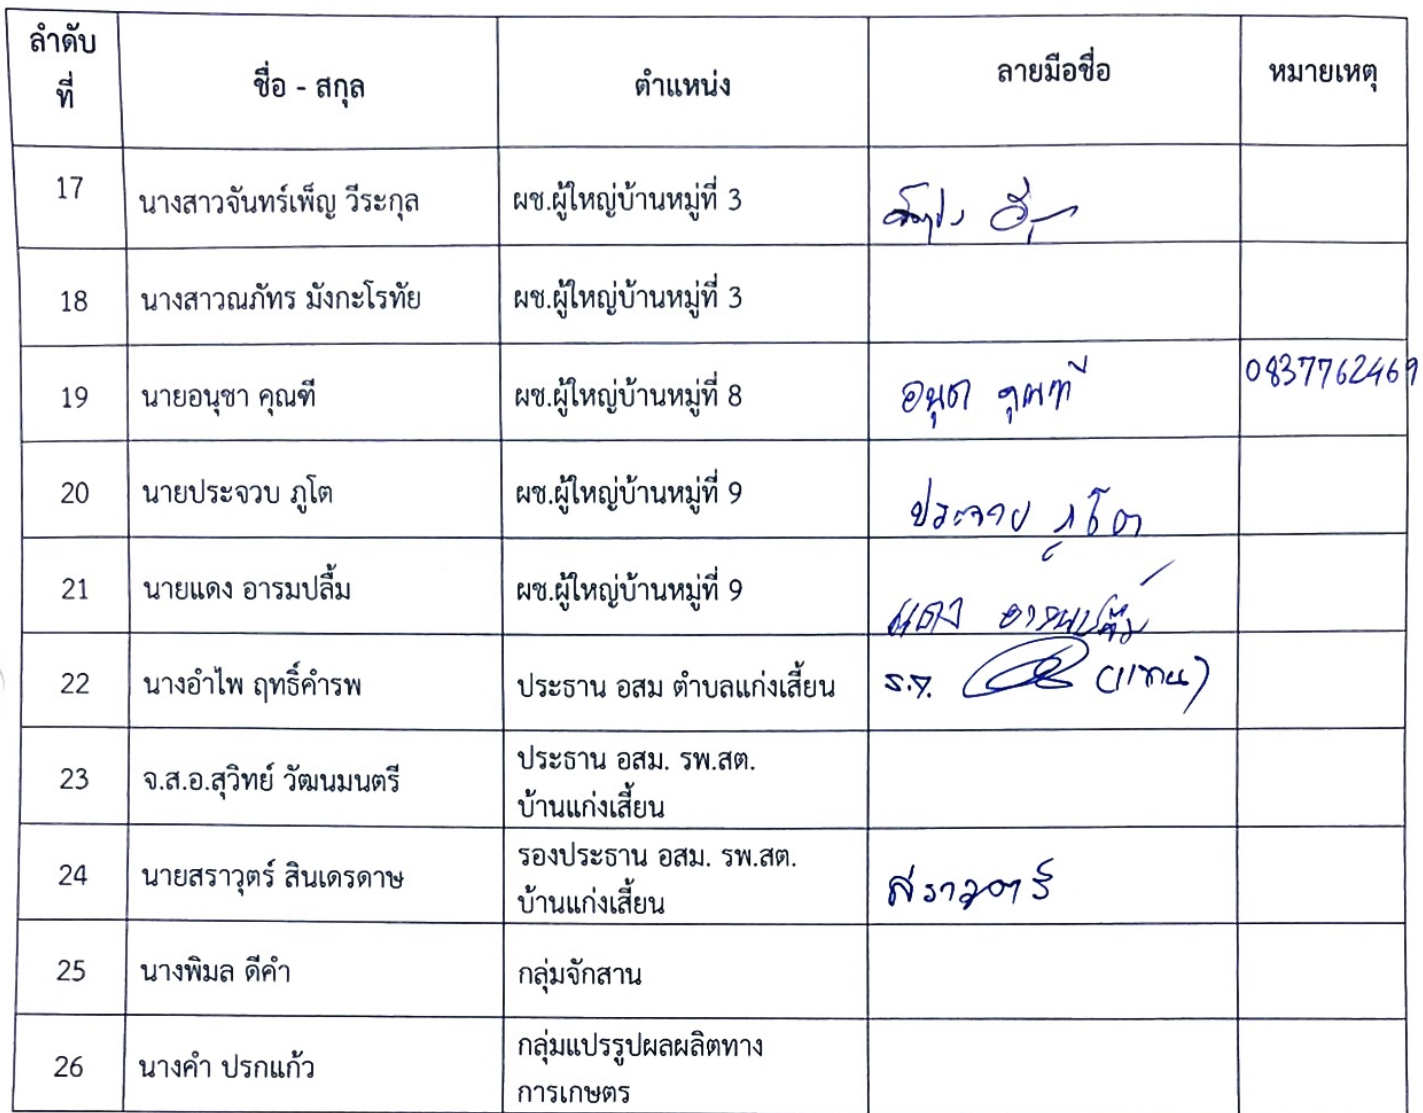 ลำดับ
ที่
ชื่อ - สกุล
ตำแหน่ง
ลายมือชื่อ
หมายเหตุ
17 นางสาวจันทร์เพ็ญ วีระกุล ผช.ผู้ใหญ่บ้านหมู่ที่ 3
18 นางสาวณภัทร มังกะโรทัย ผช.ผู้ใหญ่บ้านหมู่ที่ 3
19 นายอนุชา คุณฑี ผช.ผู้ใหญ่บ้านหมู่ที่ 8 อนุชา คุณฑี 0837762469
20 นายประจวบ ภูโต ผช.ผู้ใหญ่บ้านหมู่ที่ 9 ประจวบ ภูโต
21 นายแดง อารมปลื้ม ผช.ผู้ใหญ่บ้านหมู่ที่ 9 แดง อารมปลื้ม
22 นางอำไพ ฤทธิ์คำรพ ประธาน อสม ตำบลแก่งเสี้ยน (แทน)
23 จ.ส.อ.สุวิทย์ วัฒนมนตรี ประธาน อสม. รพ.สต.
บ้านแก่งเสี้ยน
24 นายสราวุตร์ สินเดรดาษ รองประธาน อสม. รพ.สต. สราวุตร์
บ้านแก่งเสี้ยน
25 นางพิมล ดีคำ กลุ่มจักสาน
26 นางคำ ปรกแก้ว กลุ่มแปรรูปผลผลิตทาง
การเกษตร